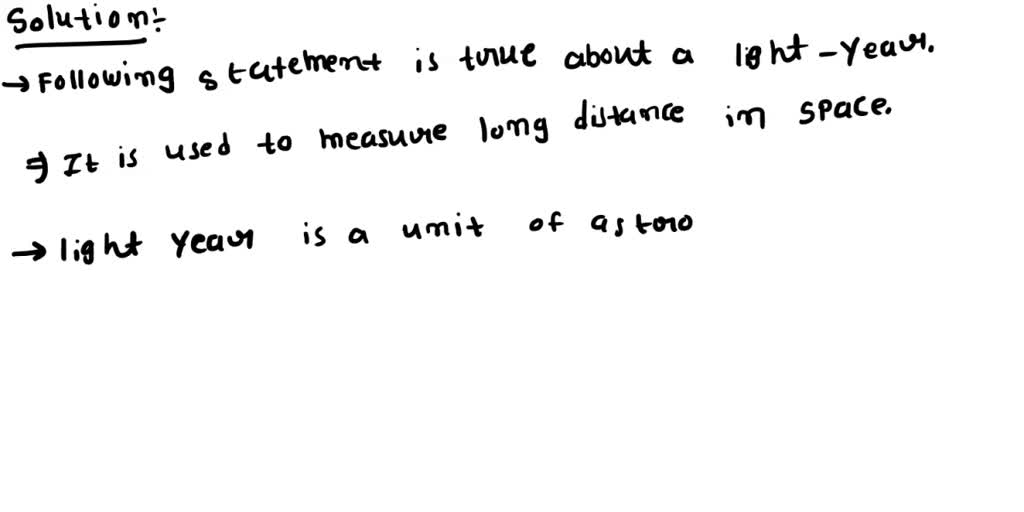 Solution:-
→ Following statement is true about a light-year.
⇒ It is used to measure long distance in space.
→ light year is a unit of astro